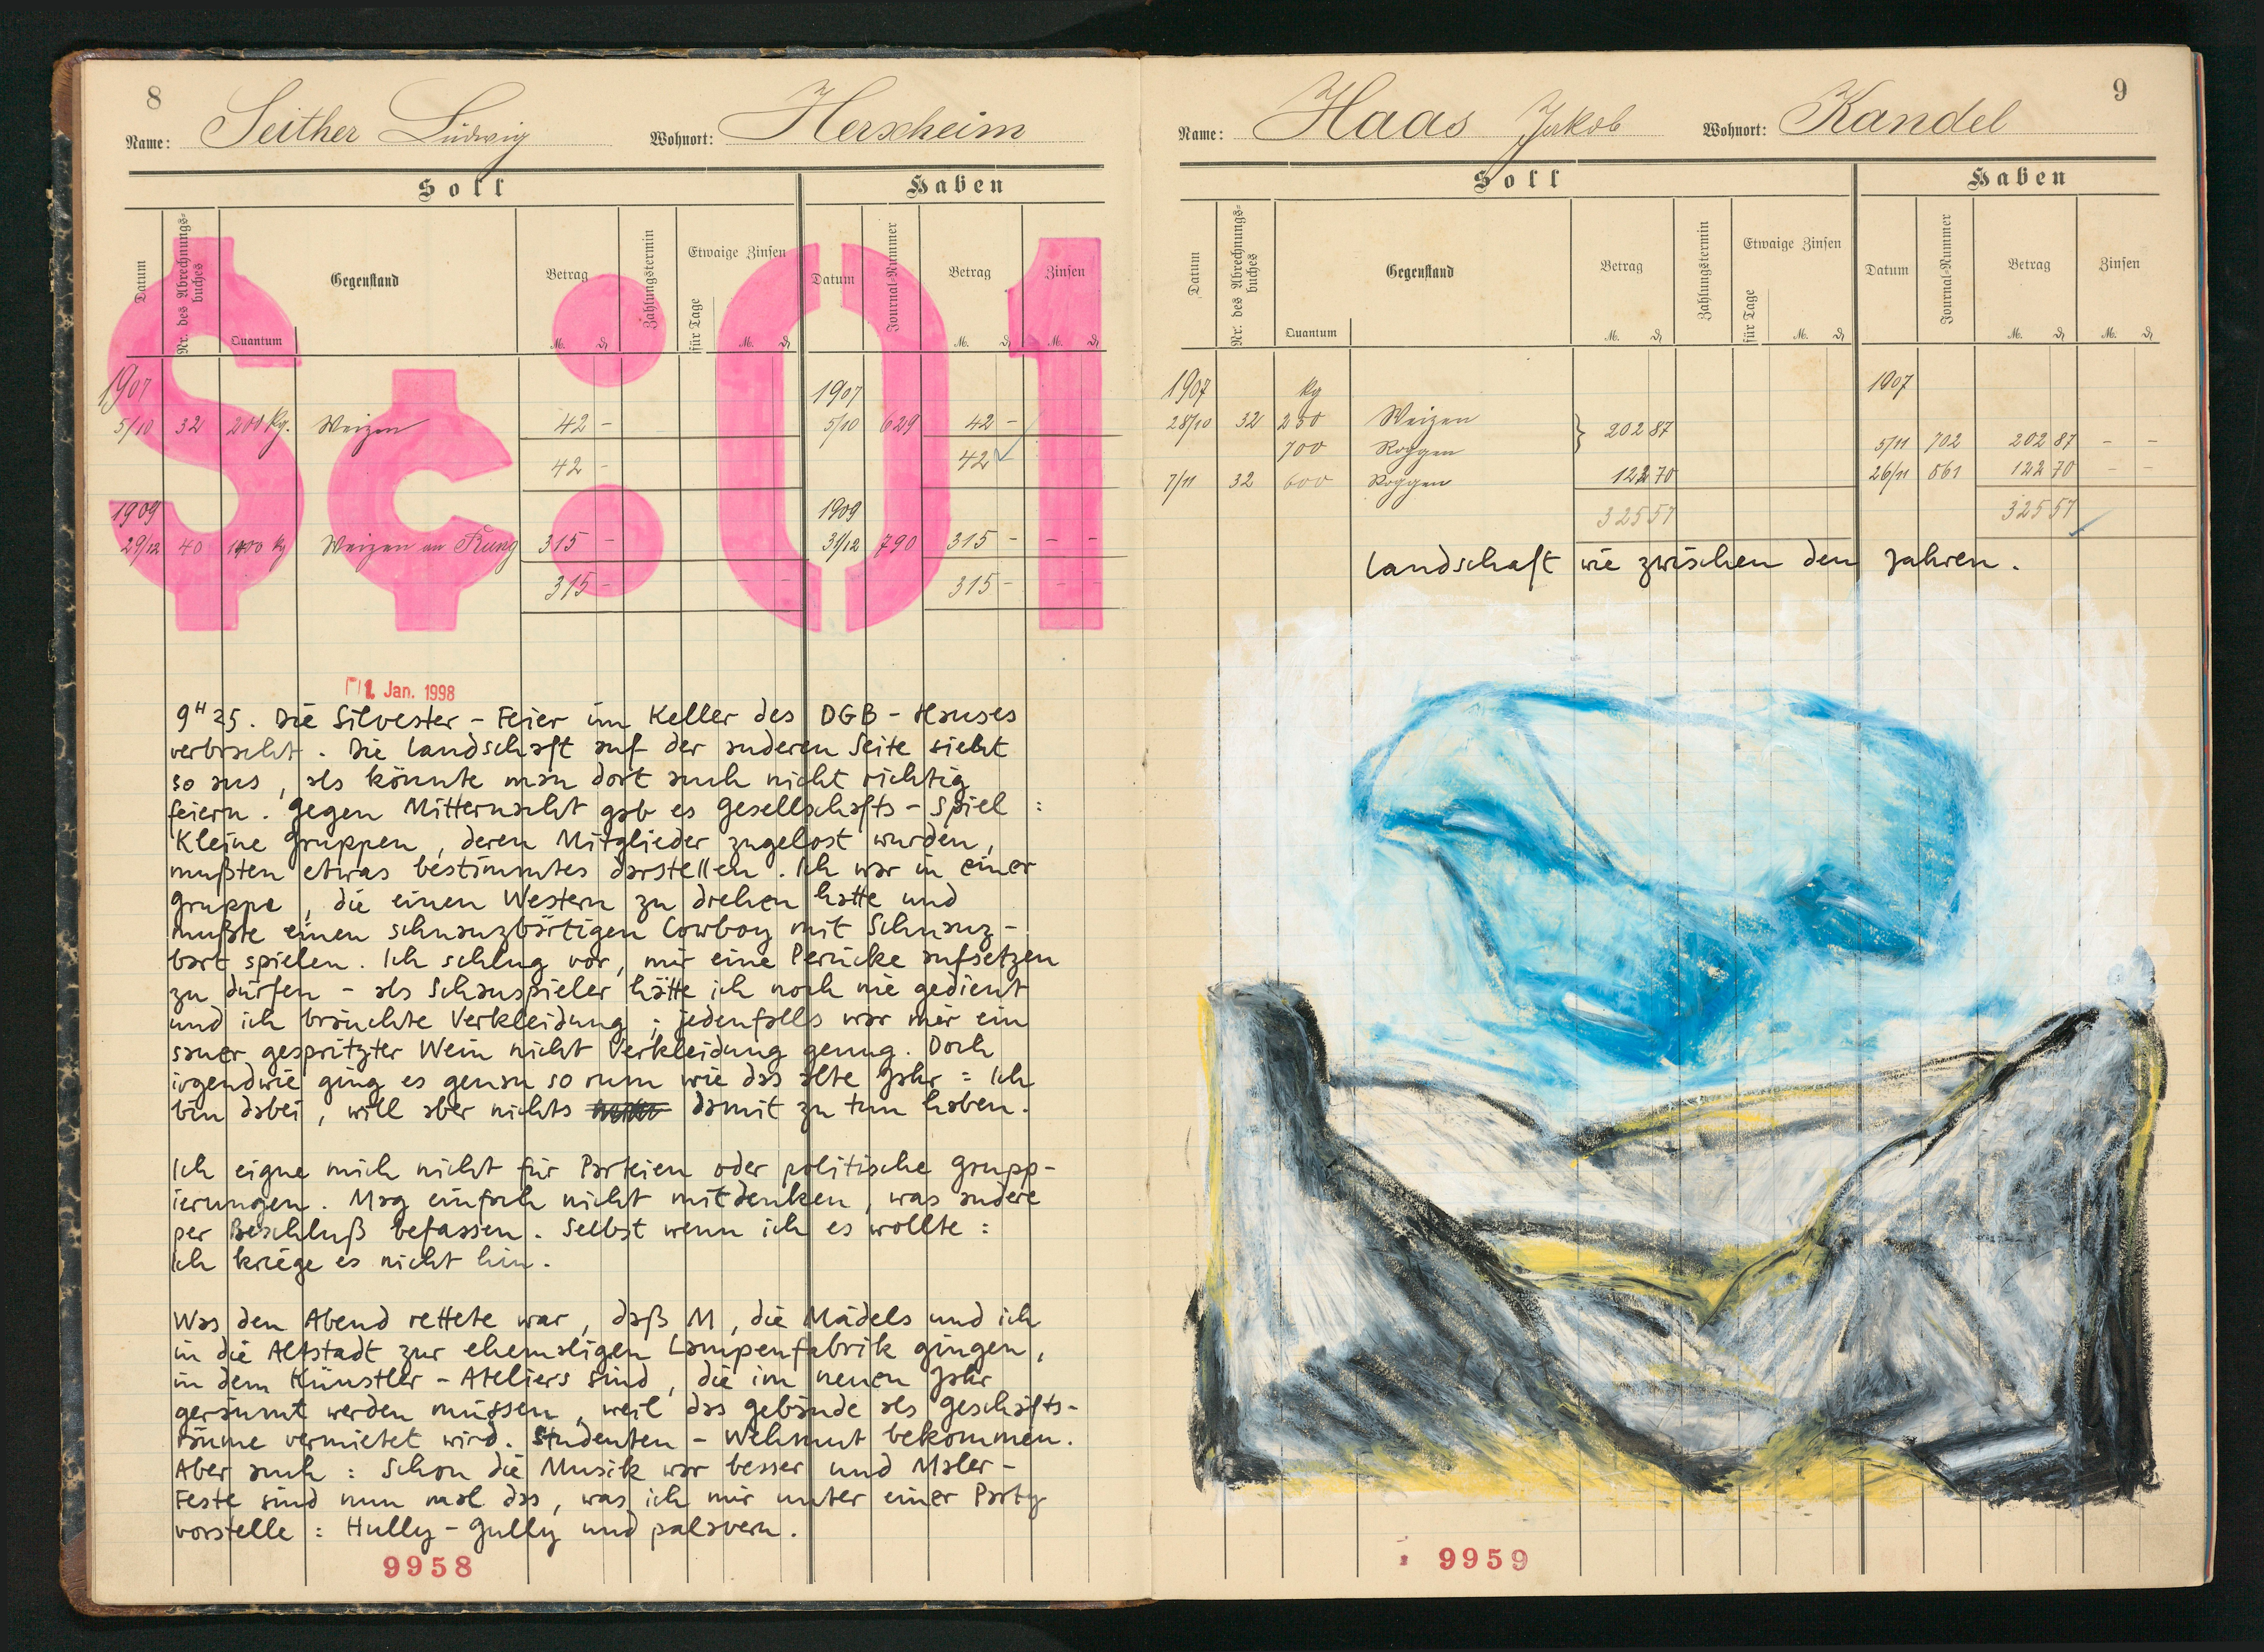 8
Name: Seither Ludwig Wohnort: Herxheim
Soll Haben
Datum Nr. des Abrechnungs-buches Quantum Gegenstand Betrag M. ₰ Zahlungstermin Etwaige Zinsen für Tage M. ₰ Datum Journal-Nummer Betrag M. ₰ Zinsen M. ₰
$¢:01
1907 1907
5/10 32 200 kg. Weizen 42 - 5/10 629 42 -
42 - 42 -
1909 1909
29/12 40 kg Weizen an 315 - 31/12 790 315 - - -
315 - 315 - - -
01. Jan. 1998
9H25. Die Silvester-Feier im Keller des DGB-Hauses
verbracht. Die Landschaft auf der anderen Seite sieht
so aus, als könnte man dort auch nicht richtig
feiern. Gegen Mitternacht gab es Gesellschafts-Spiel:
Kleine Gruppen, deren Mitglieder zugelost wurden,
mußten etwas bestimmtes darstellen. Ich war in einer
Gruppe, die einen Western zu drehen hatte und
mußte einen schnauzbärtigen Cowboy mit Schnauz-
bart spielen. Ich schlug vor, mir eine Perücke aufsetzen
zu dürfen - als Schauspieler hätte ich noch nie gedient
und ich bräuchte Verkleidung; jedenfalls war mir ein
sauer gespritzter Wein nicht Verkleidung genug. Doch
irgendwie ging es genau so rum wie das alte Jahr: Ich
bin dabei, will aber nichts damit zu tun haben.
Ich eigne mich nicht für Parteien oder politische Grupp-
ierungen. Mag einfach nicht mitdenken, was andere
per Beschluß befassen. Selbst wenn ich es wollte:
Ich kriege es nicht hin.
Was den Abend rettete war, daß M, die Mädels und ich
in die Altstadt zur ehemaligen Lampenfabrik gingen,
in dem Künstler-Ateliers sind, die im neuen Jahr
geräumt werden müssen, weil das Gebäude als Geschäfts-
räume vermietet wird. Studenten-Wehmut bekommen.
Aber auch: Schon die Musik war besser und Maler-
Feste sind nun mal das, was ich mir unter einer Party
vorstelle: Hully-Gully und palavern.
9958
9
Name: Haas Jakob Wohnort: Kandel
Soll Haben
Datum Nr. des Abrechnungs-buches Quantum Gegenstand Betrag M. ₰ Zahlungstermin Etwaige Zinsen für Tage M. ₰ Datum Journal-Nummer Betrag M. ₰ Zinsen M. ₰
1907 kg 1907
28/10 32 250 Weizen } 202 87
700 Roggen 5/11 702 202 87 - -
7/11 32 600 Roggen 122 70 26/11 861 122 70 - -
325 57 325 57
Landschaft wie zwischen den Jahren.
9959